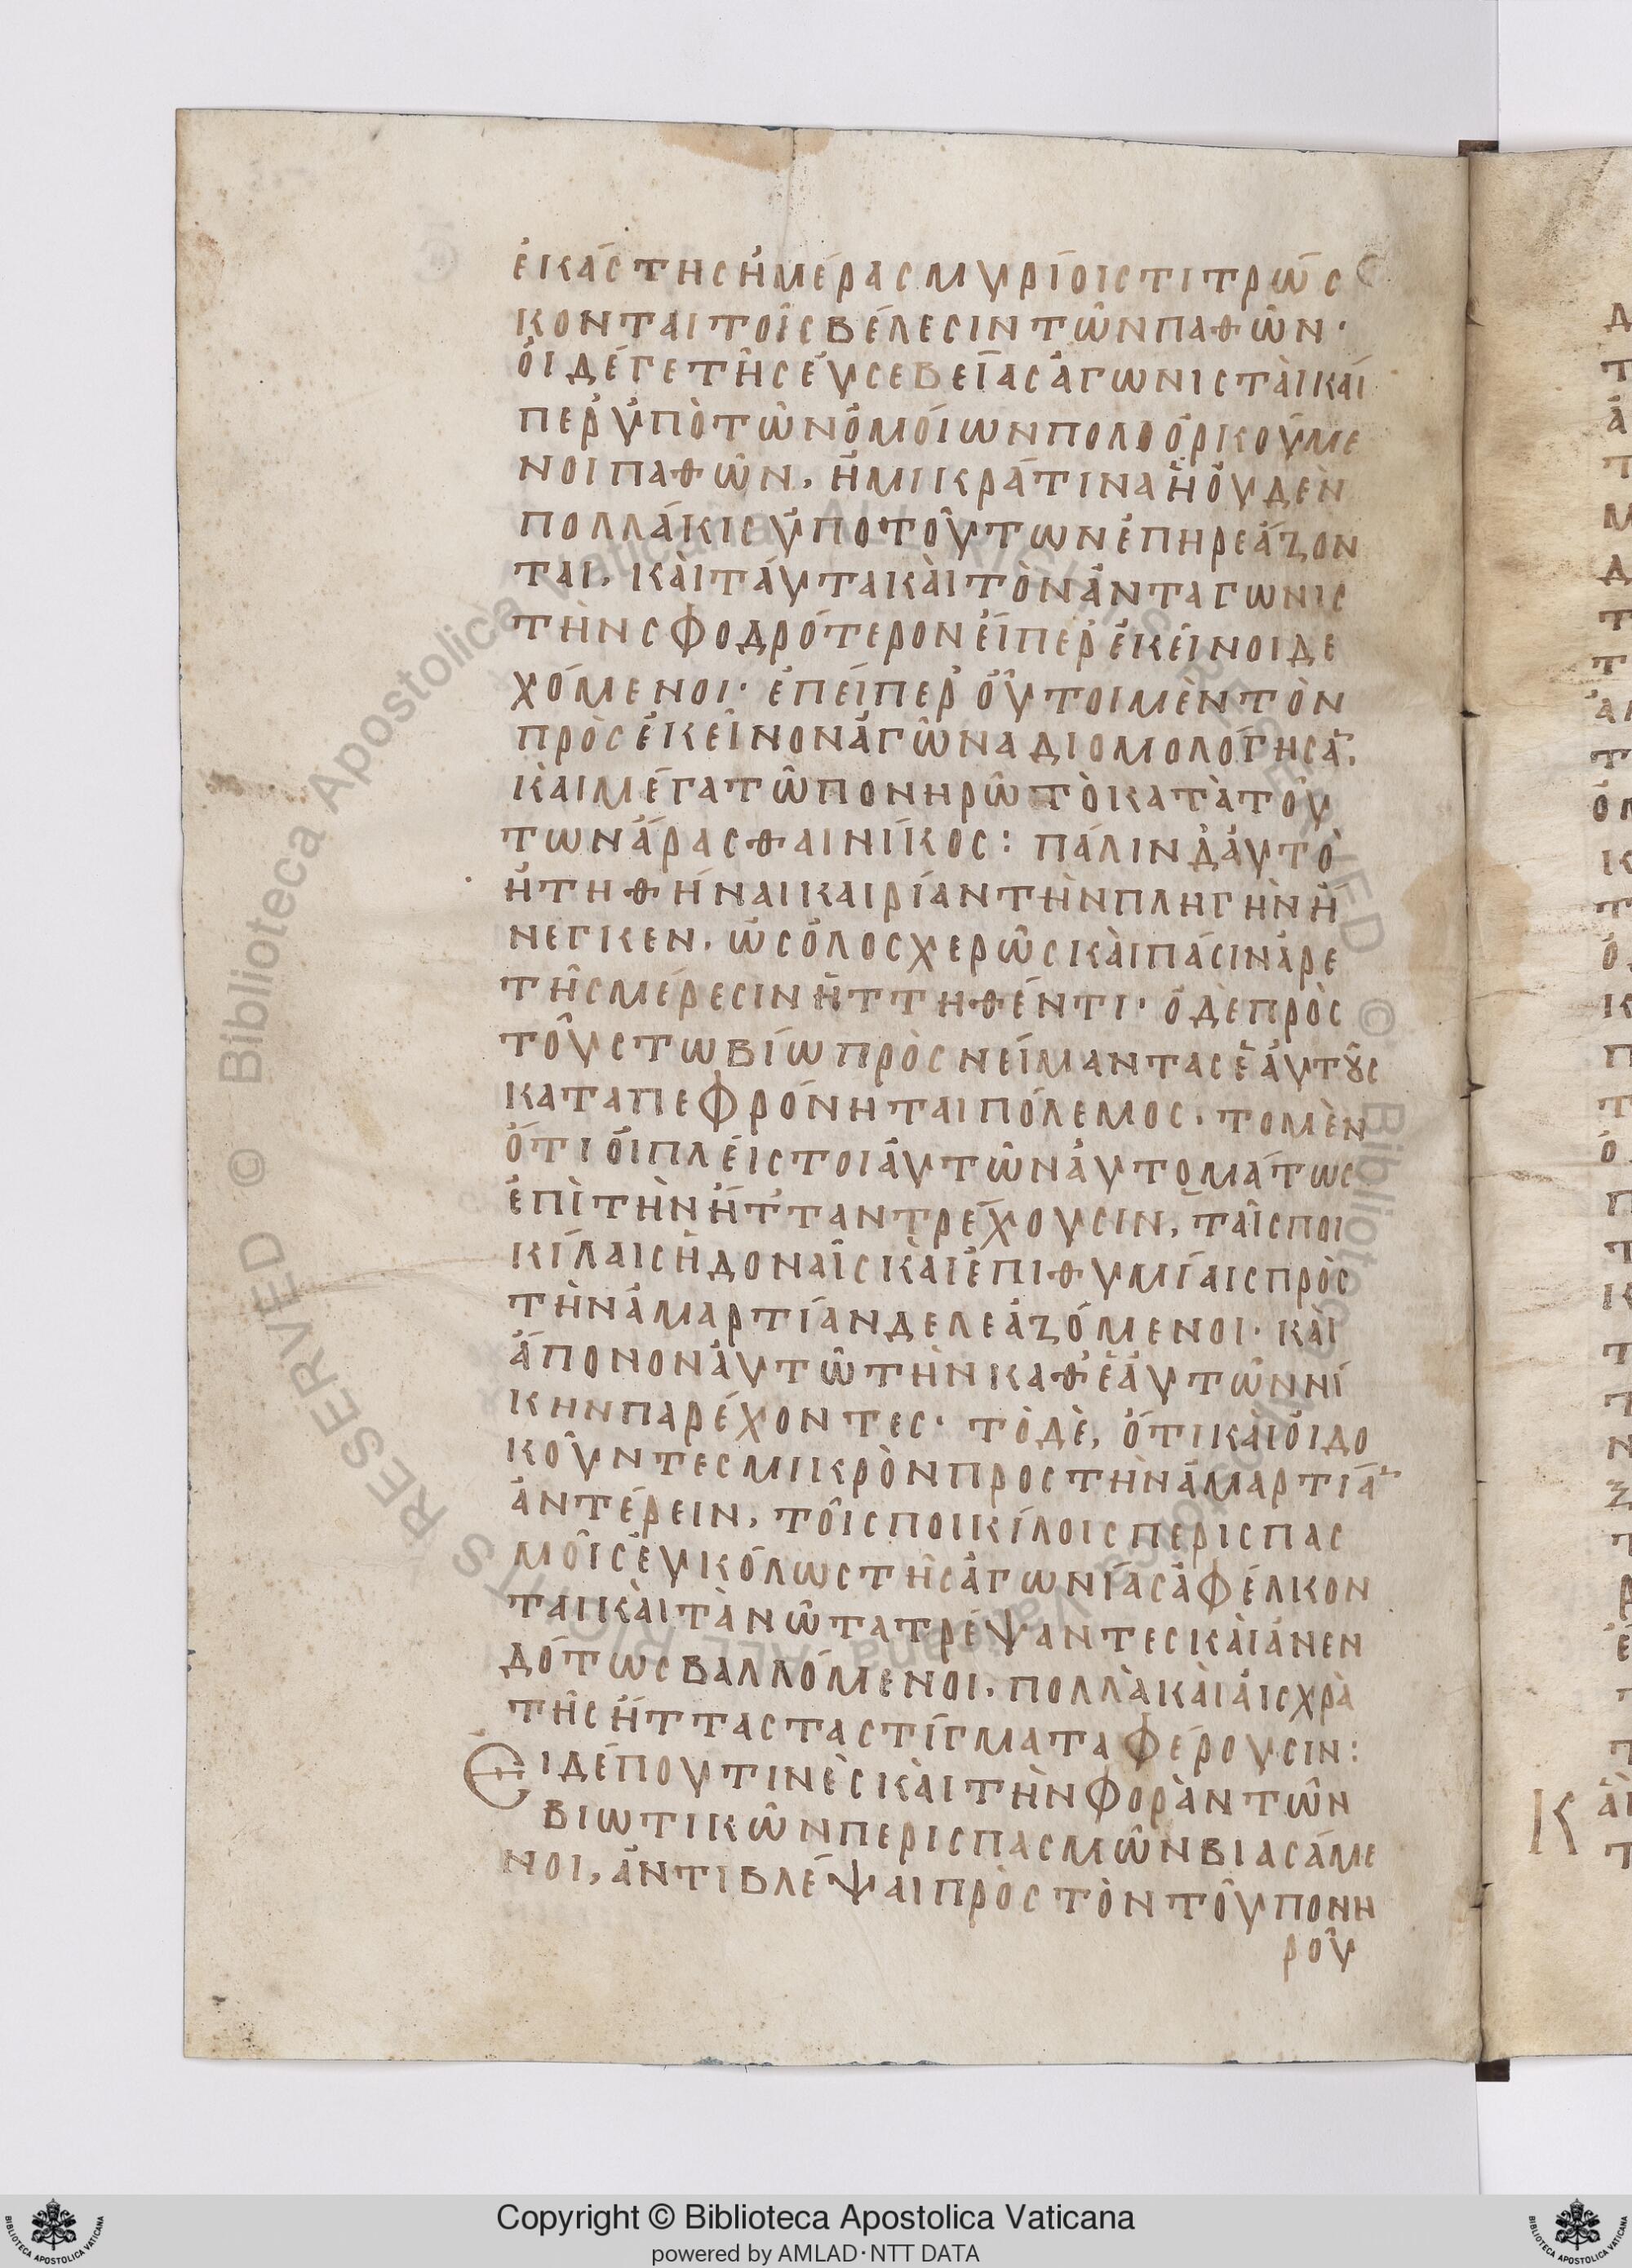 ἑκάστης ἡμέρας μυρίοις τιτρώσ
κονται τοῖς βέλεσιν τῶν παθῶν·
ὁι δέ γε τῆς ἐυσεβείας ἀγωνισταὶ καί
περ ὑπὸ τῶν ὁμοίων πολοορκούμε
νοι παθῶν, ἢ μικρά τινα ἢ οὐδὲν
πολλάκις ὑπο τούτων ἐπηρεάζον
ται, καὶ τάυτα καὶ τὸν ἀνταγωνισ
τὴν σφοδρότερον ἐίπερ ἐκέινοι δε
χόμενοι· ἐπείπερ ὁῦτοι μὲν τὸν
πρὸς ἐκεῖνον ἀγῶνα διομολόγησα̅,
καὶ μέγα τῶ πονηρῶ τὸ κατὰ τού
των ἄρασθαι νίκος: πάλιν δ' ἀυτὸ
ἡτηθήναι καιρίαν τὴν πληγὴν ἤ
νεγκεν, ὡς ὁλοσχερῶς καὶ πάσιν ἀρε
τῆς μέρεσιν ἡττηθέντι· ὁ δὲ πρὸς
τοὺς τω βίω πρὸς νείμαντας ἑαυτοὺς
καταπεφρόνηται πόλεμος, το μὲν
ὅτι ὁι πλέιστοι ἀυτῶν ἀυτομάτως
ἐπὶ τὴν ἧτταν τρέχουσιν, ταῖς ποι
κίλαις ἡδοναῖς καὶ ἐπιθυμίαις πρὸς
τὴν ἁμαρτίαν δελεαζόμενοι· καὶ
ἄπονον ἀυτῶ τὴν καθ' ἑαυτῶν νί
κην παρέχοντες· τὸ δὲ, ὅτι καὶ ὁι δο
κοῦντες μικρὸν προς τὴν ἁμαρτία̅
ἀντέρειν, τοῖς ποικίλοις περισπασ
μοῖς ἐυκόλως τῆς ἀγωνίας ἀφέλκον
ται καὶ τὰ νῶτα τρέψαντες καὶ ἀνεν
δότως βαλλόμενοι, πολλὰ καὶ ἀισχρὰ
τῆς ἥττας τα στίγματα φέρουσιν:
Ει δέ που τινὲς καὶ τὴν φορὰν τῶν
βιωτικῶν περισπασμῶν βιασάμε
νοι, ἀντιβλέψαι πρὸς τὸν τοῦ πονη
ροῦ
Copyright © Biblioteca Apostolica Vaticana
powered by AMLAD·NTT DATA